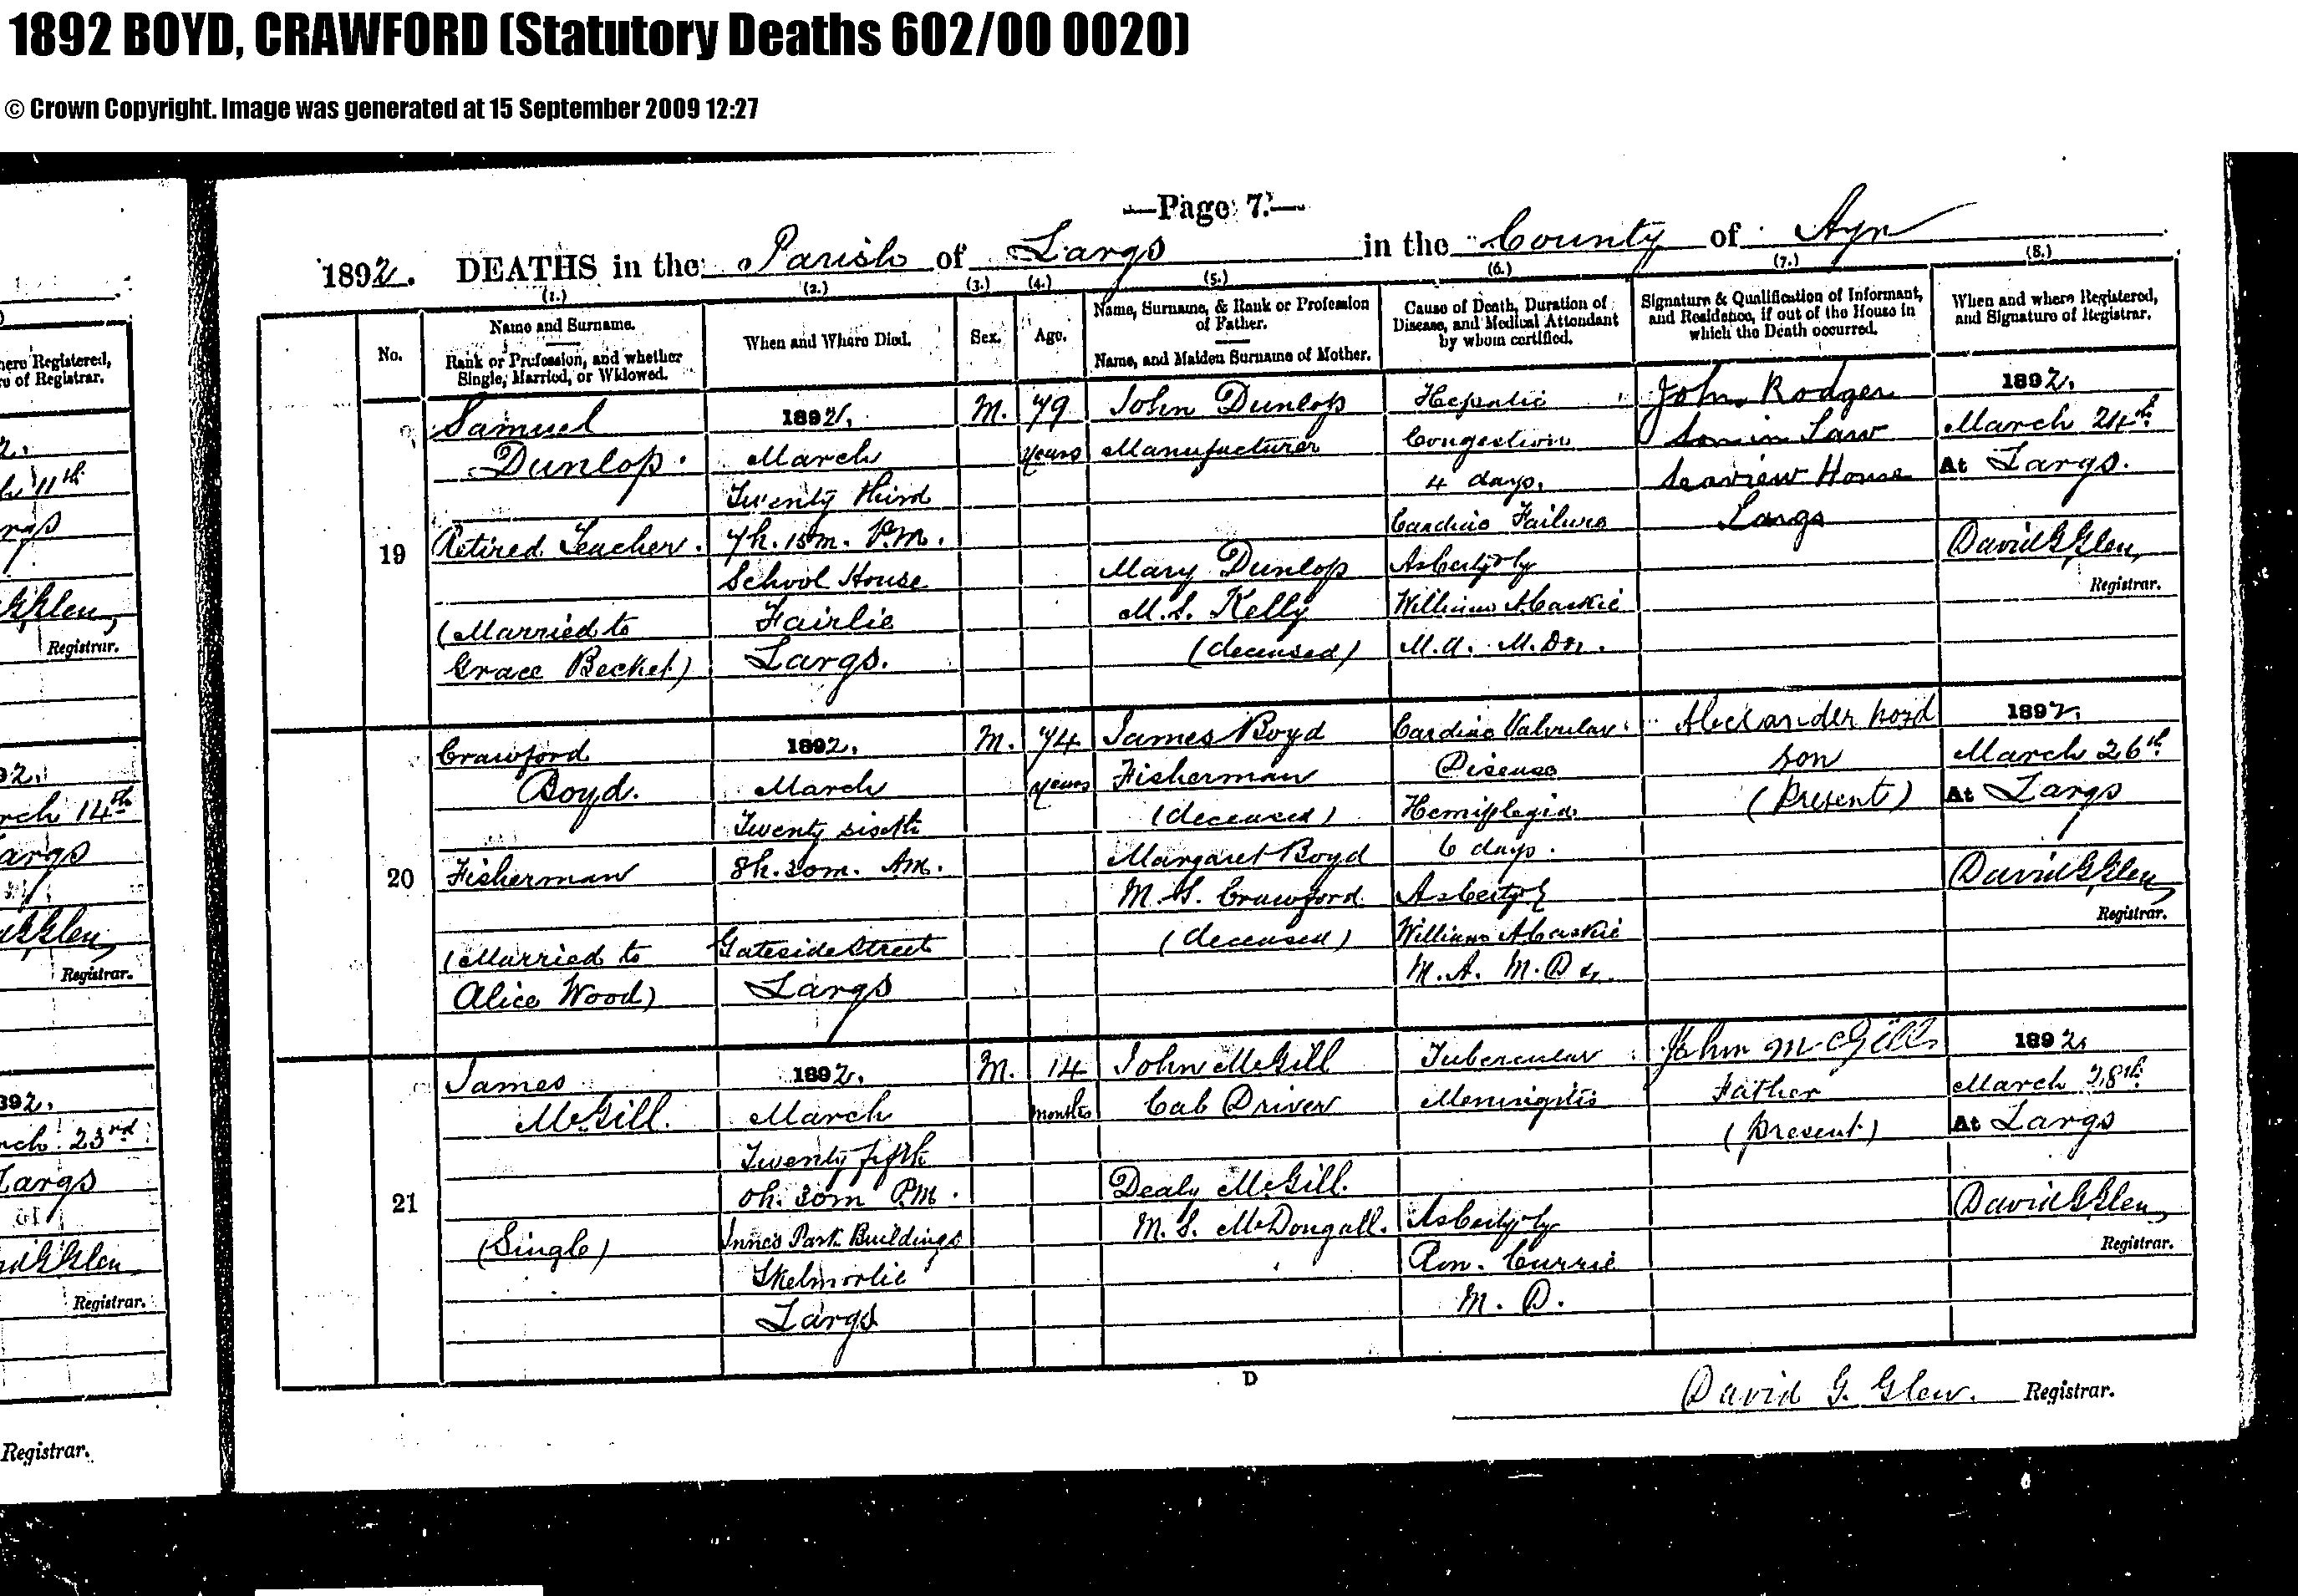 1892 BOYD, CRAWFORD (Statutory Deaths 602/00 0020)
© Crown Copyright. Image was generated at 15 September 2009 12:27
—Page 7.—
1892. DEATHS in the Parish of Largs in the County of Ayr
(1.) (2.) (3.) (4.) (5.) (6.) (7.) (8.)
No.
Name and Surname.
Rank or Profession, and whether
Single, Married, or Widowed.
When and Where Died.
Sex.
Age.
Name, Surname, & Rank or Profession
of Father.
Name, and Maiden Surname of Mother.
Cause of Death, Duration of
Disease, and Medical Attendant
by whom certified.
Signature & Qualification of Informant,
and Residence, if out of the House in
which the Death occurred.
When and where Registered,
and Signature of Registrar.
19
Samuel
Dunlop.
Retired Teacher.
(Married to
Grace Becket)
1892,
March
Twenty third
7h. 15m. P.M.
School House
Fairlie
Largs.
M.
79
years
John Dunlop
Manufacturer
Mary Dunlop
M.S. Kelly
(deceased)
Hepatic
Congestion
4 days.
Cardiac Failure
As Cert by
William
M.A. M.D
John Rodger
Son in Law
Seaview House
Largs
1892,
March 24th
At Largs.
David G Glen,
Registrar.
20
Crawford
Boyd.
Fisherman
(Married to
Alice Wood)
1892,
March
Twenty sixth
8h. 30m. AM.
Gateside Street
Largs
M.
74
years
James Boyd
Fisherman
(deceased)
Margaret Boyd
M.S. Crawford
(deceased)
Cardiac Valvular
Disease
Hemiplegia
6 days.
As Cert by
William
M.A. M.D
Alexander Boyd
Son
(Present)
1892,
March 26th
At Largs
David G Glen,
Registrar.
21
James
McGill.
(Single)
1892,
March
Twenty fifth
0h. 30m P.M.
Innes Park Buildings
Skelmorlie
Largs
M.
14
months
John McGill
Cab Driver
Dealy McGill.
M.S. McDougall.
Tubercular
Meningitis
As Cert by
Currie
M.D.
John McGill
Father
(Present)
1892,
March 28th
At Largs
David G Glen,
Registrar.
D
David G. Glen. Registrar.
here Registered,
re of Registrar.
11th
Glen,
Registrar.
14th
Glen,
Registrar.
23rd
Largs
Glen
Registrar.
Registrar.